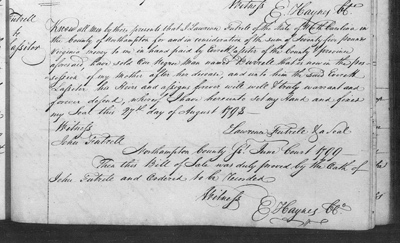 Witness E Haynes CC
Futrell
to
Lassiter
Know all men by these presents that I Lawrence Futrell of the State of North Carolina in
the County of Northampton for and in consideration of the Sum of Seventy five pounds
Virginia money to me in hand paid by Everett Lassiter of the County & Province
aforesaid, have sold One Negro Man named that is now in the pos-
session of my Mother after her decease, and unto him the Said Everett
Lassiter his Heirs and assigns forever will well & truly warrant and
forever defend, whereof I have hereunto set my Hand and fixed
my Seal this 27th day of August 1798
Witness
John Futrell
Lawrence Futrell & Seal
Northampton County Ss. June Court 1799
Then this Bill of Sale was duly proved by the Oath of
John Futrell and Ordered to be Recorded
Witness
E Haynes CC